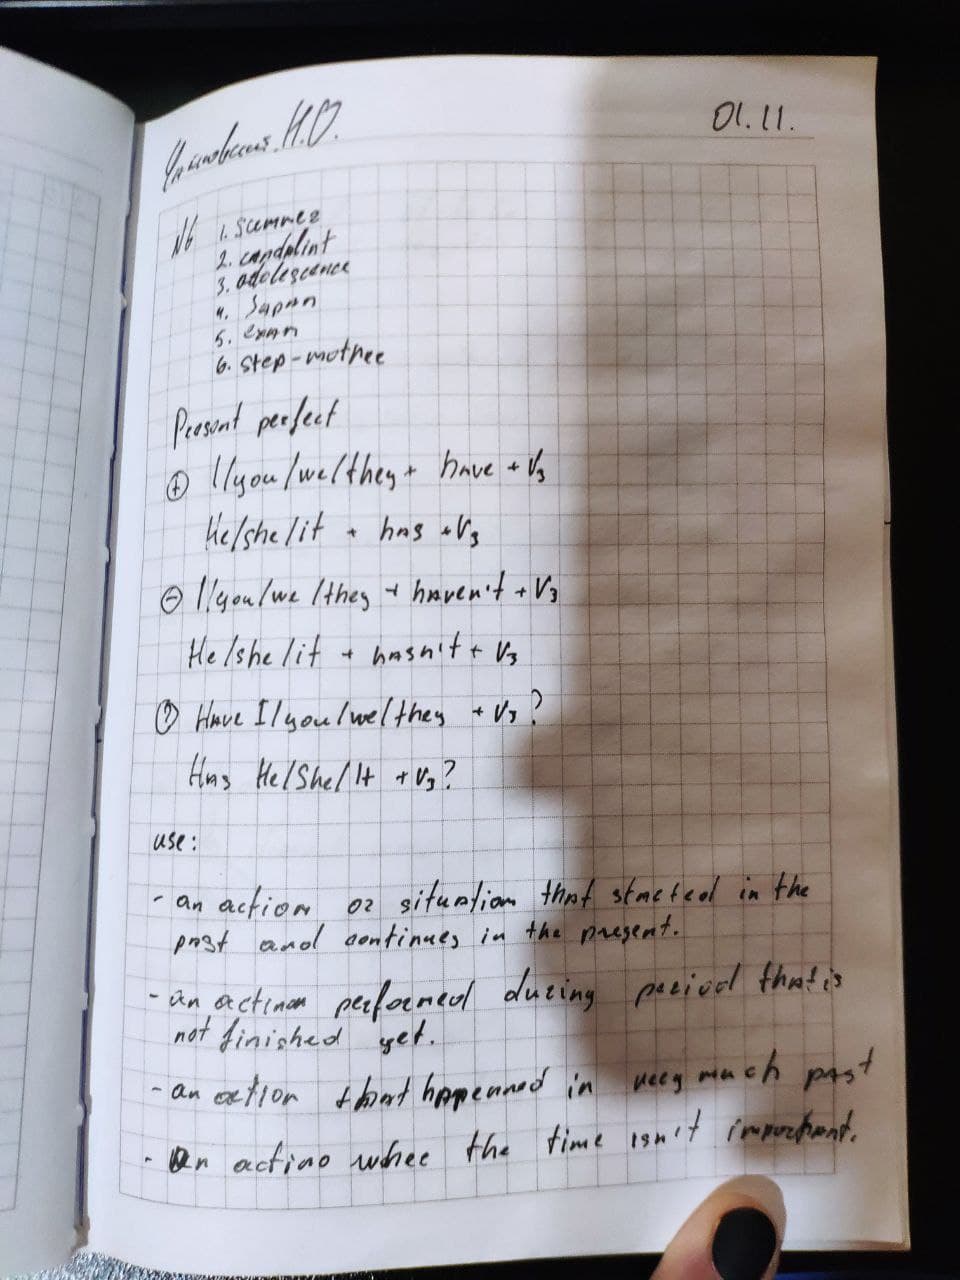 Н.О.
01.11.
№6 1. Summer
2.
3. adolescence
4. Japan
5. exam
6. step-mother
Present perfect
+ I/you/we/they + have + V3
He/she/it + has + V3
- I/you/we/they + haven't + V3
He/she/it + hasn't + V3
? Have I/you/we/they + V3?
Has He/She/It + V3?
use:
- an action or situation that started in the
past and continues in the present.
- an actinon performed during period that is
not finished yet.
- an action that happenned in very much past
- an actino wher the time isn't important.